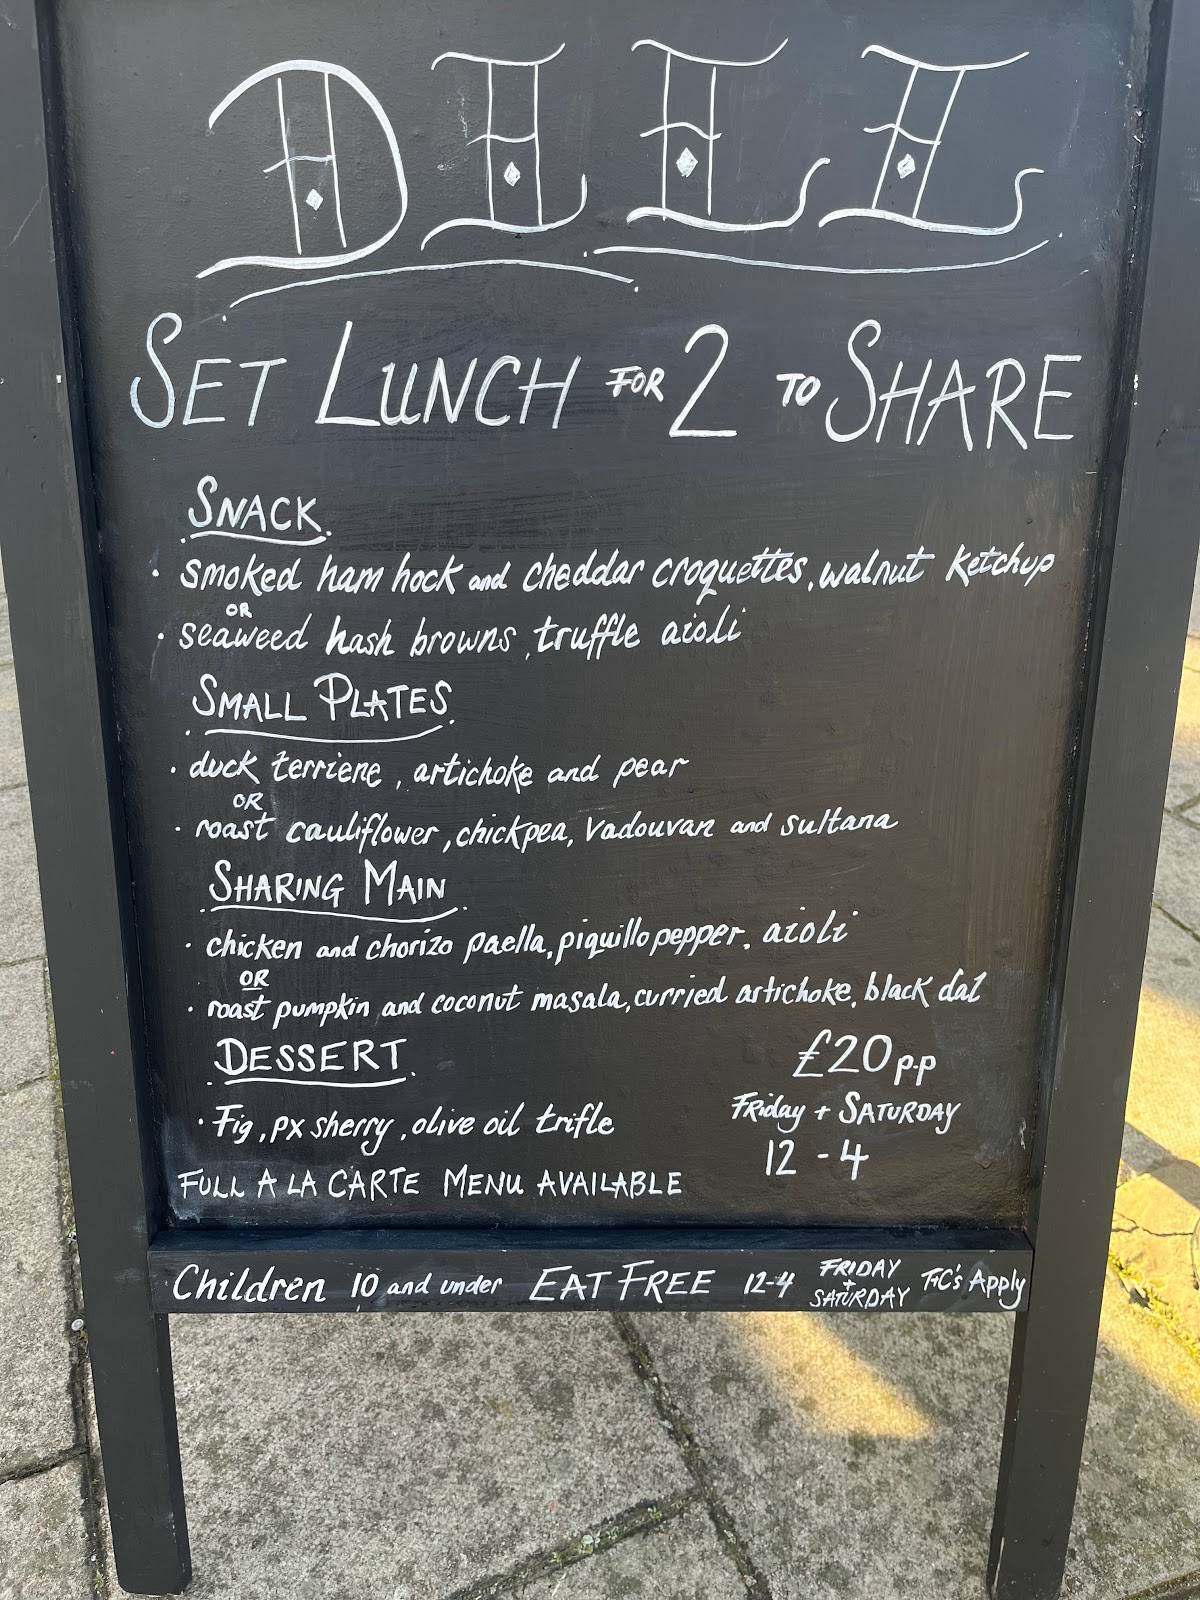 DELI
SET LUNCH FOR 2 TO SHARE
SNACK
· smoked ham hock and cheddar croquettes, walnut ketchup
OR
· seaweed hash browns, truffle aioli
SMALL PLATES
· duck terriene, artichoke and pear
OR
· roast cauliflower, chickpea, vadouvan and sultana
SHARING MAIN
· chicken and chorizo paella, piquillo pepper, aioli
OR
· roast pumpkin and coconut masala, curried artichoke, black dal
DESSERT
£20 p.p
· Fig, px sherry, olive oil trifle
FRiday + SATURDAY
12 - 4
FULL A LA CARTE MENU AVAILABLE
Children 10 and under EAT FREE 12-4 FRIDAY + SATURDAY T+C's Apply